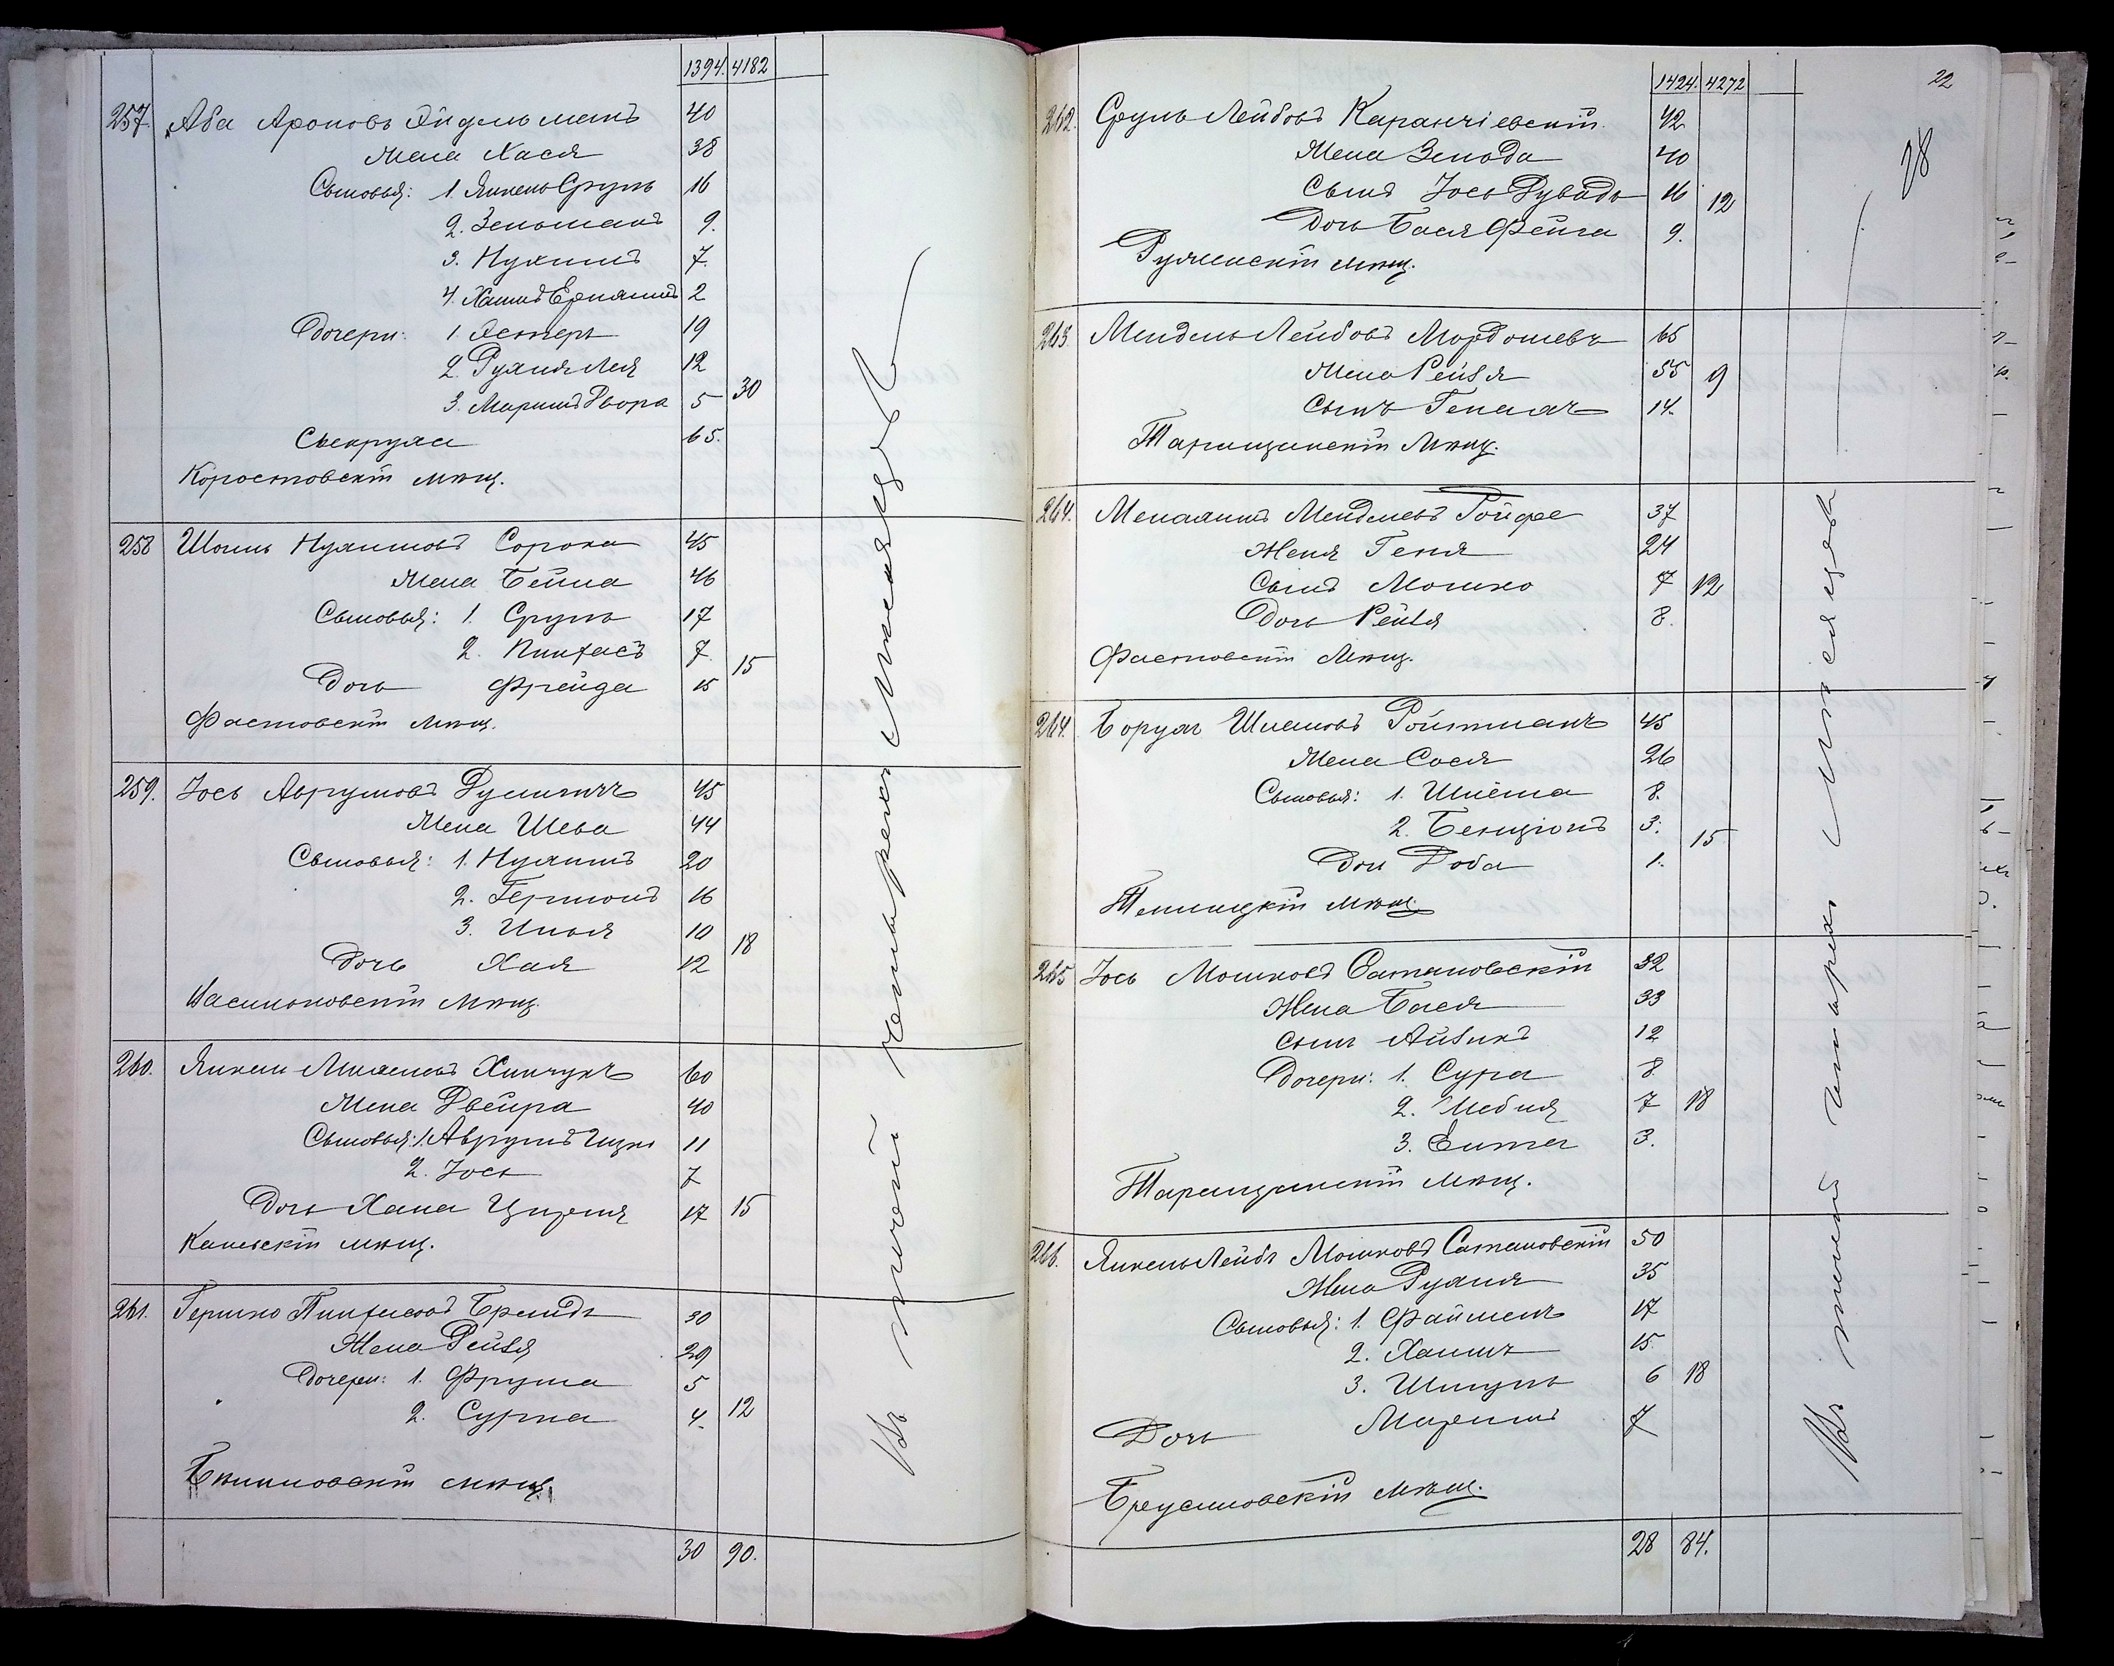 1394. 4182
257. Аба Ароновъ Эйдельманъ 40
Жена Хася 38
Сыновья: 1. Янкель Сруль 16
2. Зельманъ 9.
3. Нухимъ 7.
4. Хаимъ Ерухимъ 2
Дочери: 1. Эстеръ 19
2. Рухля Лея 12
3. Маримъ Двора 5 30
Свекруха 65.
Коростовскій мѣщ.
258 Шоель Нухимовъ Сорока 45
Жена Бейла 46
Сыновья: 1. Сруль 17
2. Пинхасъ 7. 15
Дочь Фрейда 15
Фастовскій мѣщ.
259. Іось Аврумовъ 45
Жена Шева 44
Сыновья: 1. Нухимъ 20
2. Гершонъ 16
3. Илья 10 18
Дочь Хая 12
Васильковскій мѣщ.
260. Янкель Хинчукъ 60
Жена Двейра 40
Сыновья: 1. Аврумъ Ицко 11
2. Іось 7
Дочь Хана Ципра 17 15
Каневскій мѣщ.
261. Гершко Пинхасовъ Брендъ 30
Жена Рейзя 29
Дочери: 1. Фрума 5
2. Сурка 4. 12
мѣщ.
30 90.
Въ течении четырехъ мѣсяцевъ
1424. 4272
22
28
262. Сруль Лейбовъ Каранчіевскій 42
Жена Зельда 40
Сынъ Іось Дувидъ 16 12
Дочь Бася Фейга 9.
мѣщ.
263. Мендель Лейбовъ 65
Жена Рейзя 55 9
Сынъ Генахъ 14.
Таращанскій мѣщ.
264. Менахимъ Менделевъ Ройфе 37
Женя Геня 24
Сынъ Мошко 7 12
Дочь Рейзя 8.
Фастовскій мѣщ.
264. Борухъ Шлемовъ Ройтманъ 45
Жена Сося 26
Сыновья: 1. Шлёма 8.
2. Бенціонъ 3. 15
Доч Доба 1.
мѣщ.
265 Іось Мошковъ Сатановскій 32
Жена Бася 33
сынъ Айзикъ 12
Дочери: 1. Сура 8
2. 7 18
3. Ента 3.
Таращанскій мѣщ.
266. Янкель Лейбъ Мошковъ Сатановскій 50
Жена Рухля 35
Сыновья: 1. Файшель 17
2. Хаимъ 15.
3. Шмуль 6 18
Дочь Маримъ 7
Брусиловскій мѣщ.
28 84.
Въ течении четырехъ мѣсяцевъ